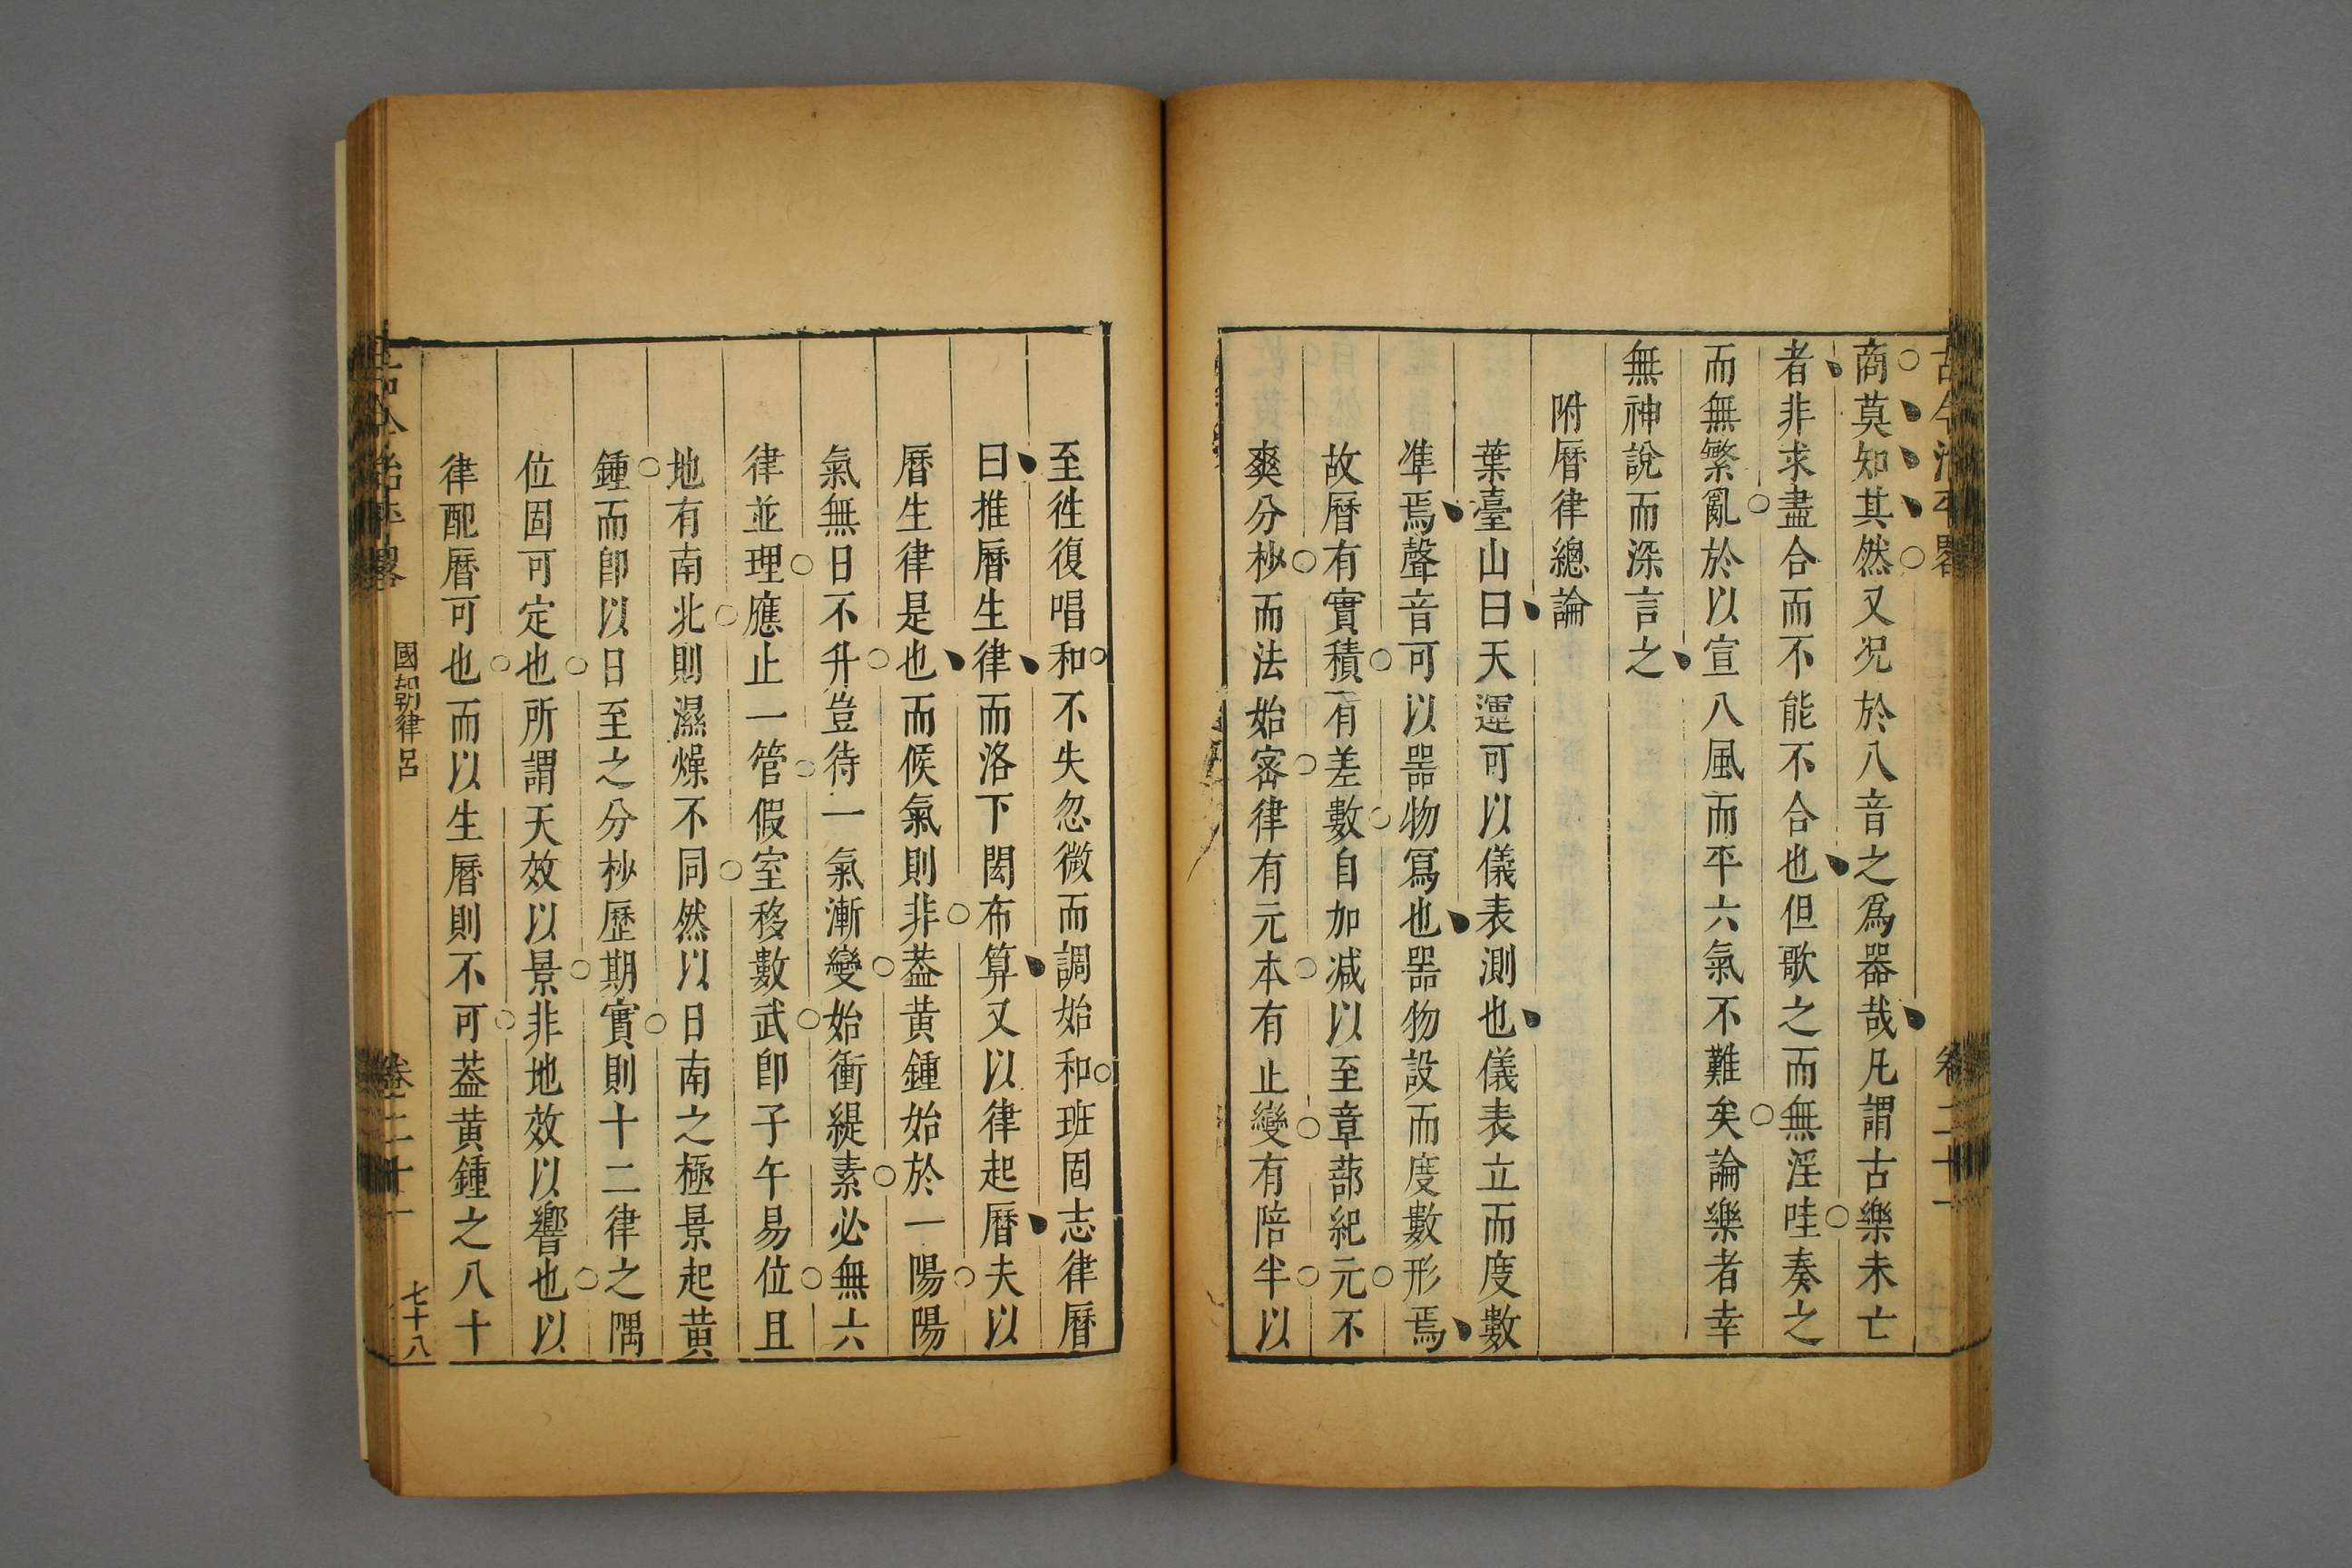 商莫知其然又况於八音之爲器哉凡謂古樂未亡
者非求盡合而不能不合也但歌之而無淫哇奏之
而無繁亂於以宣八風而平六氣不難矣論樂者幸
無神說而深言之
附曆律總論
葉臺山曰天運可以儀表測也儀表立而度數
準焉聲音可以噐物寫也噐物設而度數形焉
故曆有實積有差數自加减以至章蔀紀元不
爽分杪而法始密律有元本有止變有陪半以
至徃復唱和不失忽微而調始和班固志律曆
曰推曆生律而洛下閎布算又以律起曆夫以
曆生律是也而候氣則非葢黃鍾始於一陽陽
氣無日不升豈待一氣漸變始衝緹素必無六
律並理應止一管假室移數武卽子午易位且
地有南北則濕燥不同然以日南之極景起黃
鍾而卽以日至之分杪歷期實則十二律之隅
位固可定也所謂天效以景非地效以響也以
律配曆可也而以生曆則不可葢黃鍾之八十
國朝律呂
卷二十一
七十八